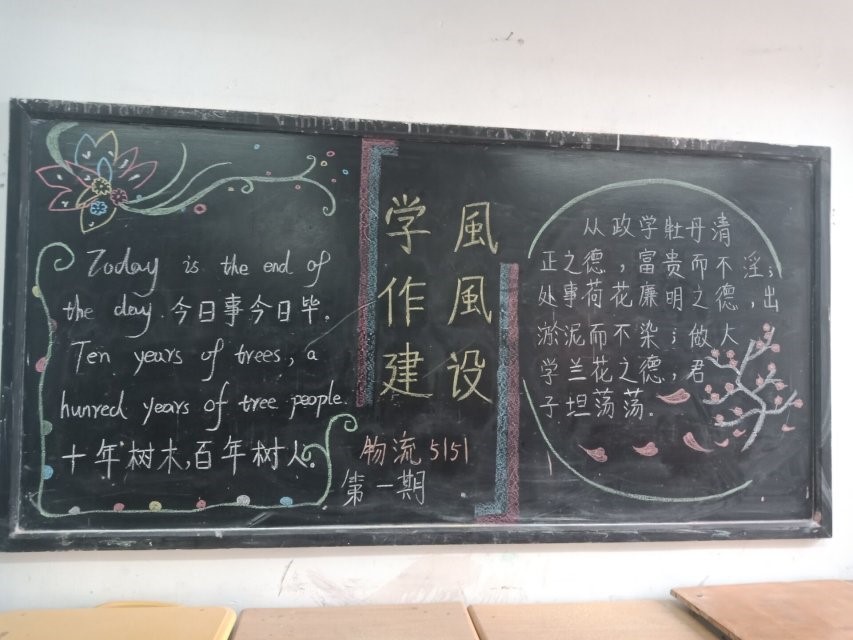 Today is the end of
the day.今日事今日毕.
Ten years of trees, a
hunred years of tree people.
十年树木,百年树人.
学風
作風
建设
物流5151
第一期
从政学牡丹清
正之德,富贵而不淫;
处事荷花廉明之德,出
淤泥而不染;做人
学兰花之德,君
子坦荡荡.